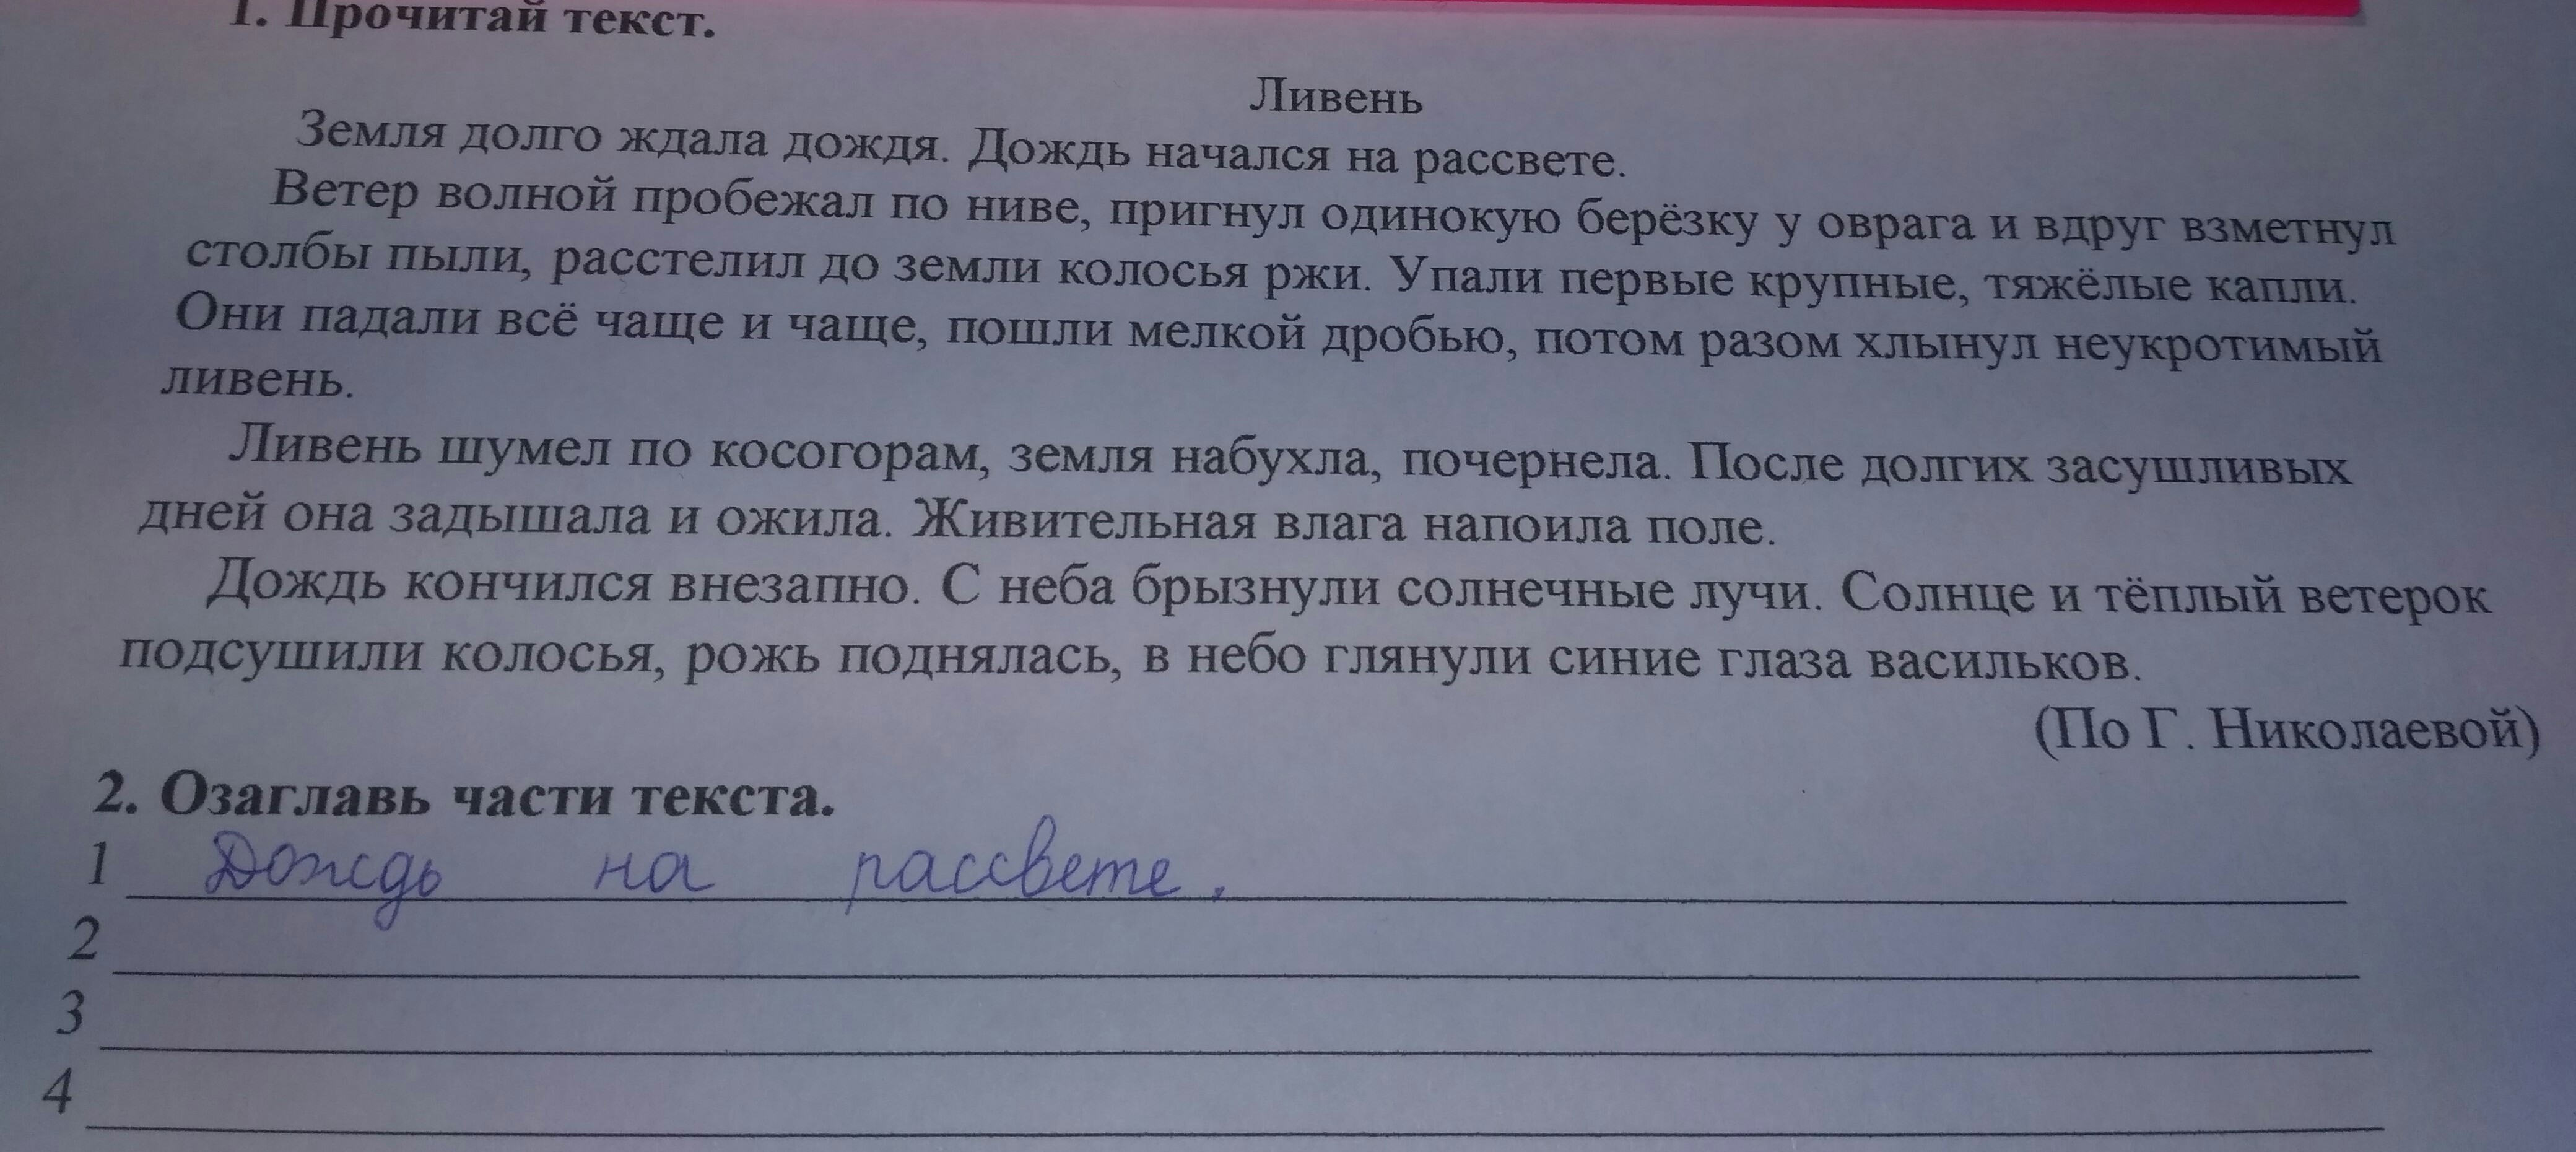 1. Прочитай текст.
Ливень
Земля долго ждала дождя. Дождь начался на рассвете.
Ветер волной пробежал по ниве, пригнул одинокую берёзку у оврага и вдруг взметнул
столбы пыли, расстелил до земли колосья ржи. Упали первые крупные, тяжёлые капли.
Они падали всё чаще и чаще, пошли мелкой дробью, потом разом хлынул неукротимый
ливень.
Ливень шумел по косогорам, земля набухла, почернела. После долгих засушливых
дней она задышала и ожила. Живительная влага напоила поле.
Дождь кончился внезапно. С неба брызнули солнечные лучи. Солнце и тёплый ветерок
подсушили колосья, рожь поднялась, в небо глянули синие глаза васильков.
(По Г. Николаевой)
2. Озаглавь части текста.
1 Дождь на рассвете.
2
3
4